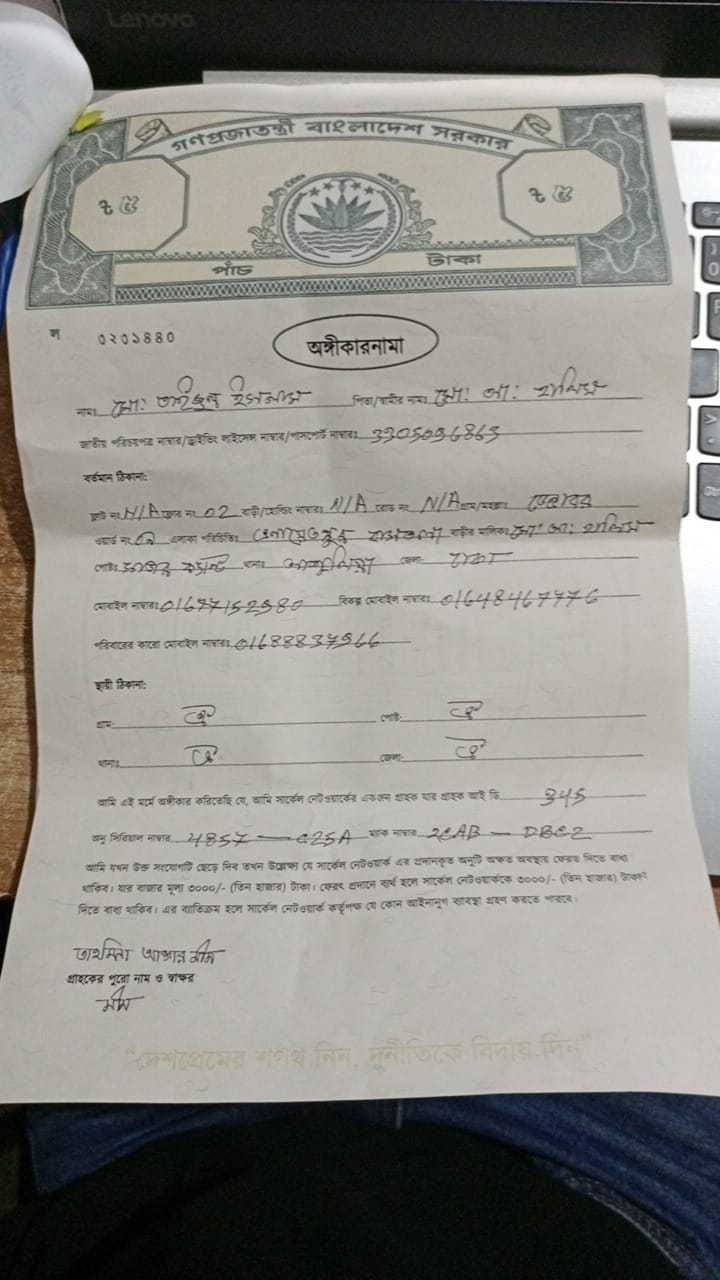 Lenovo
গণপ্রজাতন্ত্রী বাংলাদেশ সরকার
৳ ৫ ৳ ৫
পাঁচ টাকা
ল ০২০১৪৪০
অঙ্গীকারনামা
নামঃ মো: তাইজুল ইসলাম পিতা/স্বামীর নামঃ মো: আ: হালিম
জাতীয় পরিচয়পত্র নাম্বার/ড্রাইভিং লাইসেন্স নাম্বার/পাসপোর্ট নাম্বারঃ
বর্তমান ঠিকানা:
ফ্লাট নং N/A ফ্লোর নং 02 বাড়ী/হোল্ডিং নাম্বারঃ N/A রোড নং N/A গ্রাম/মহল্লা
ওয়ার্ড নং এলাকা পরিচিতিঃ বাড়ীর মালিকঃ মো: আ: হালিম
পোষ্টঃ থানাঃ জেলা: ঢাকা
মোবাইল নাম্বারঃ 01677152980 বিকল্প মোবাইল নাম্বারঃ 01648467776
পরিবারের কারো মোবাইল নাম্বারঃ
স্থায়ী ঠিকানা:
গ্রাম: ঐ পোষ্ট: ঐ
থানাঃ ঐ জেলা: ঐ
আমি এই মর্মে অঙ্গীকার করিতেছি যে, আমি সার্কেল নেটওয়ার্কের একজন গ্রাহক যার গ্রাহক আই ডি 345
অনু সিরিয়াল নাম্বার 4857 — C25A ম্যাক নাম্বার 2CAB — DBC2
আমি যখন উক্ত সংযোগটি ছেড়ে দিব তখন উল্লেক্ষ্য যে সার্কেল নেটওয়ার্ক এর প্রদানকৃত অনুটি অক্ষত অবস্থায় ফেরত দিতে বাধ্য
থাকিব। যার বাজার মূল্য ৩০০০/- (তিন হাজার) টাকা। ফেরৎ প্রদানে ব্যর্থ হলে সার্কেল নেটওয়ার্ককে ৩০০০/- (তিন হাজার) টাকা
দিতে বাধ্য থাকিব। এর ব্যতিক্রম হলে সার্কেল নেটওয়ার্ক কর্তৃপক্ষ যে কোন আইনানুগ ব্যবস্থা গ্রহন করতে পারবে।
তাহমিনা আক্তার মীম
গ্রাহকের পুরো নাম ও স্বাক্ষর
মীম
“দেশপ্রেমের শপথ নিন, দুর্নীতিকে বিদায় দিন”